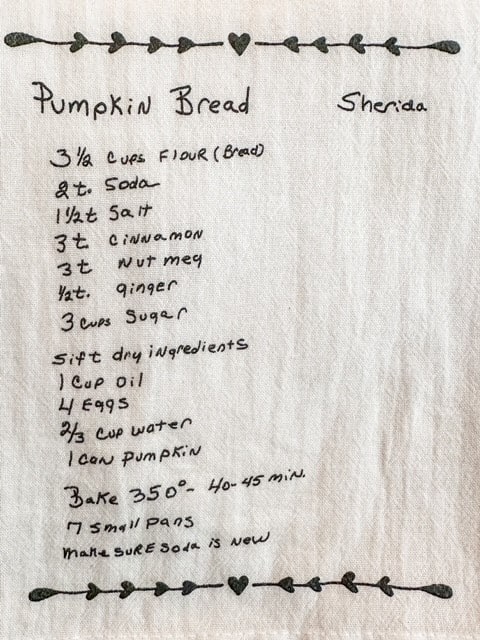 Pumpkin Bread Sherida
3 1/2 Cups Flour (Bread)
2 t. Soda
1 1/2 t Salt
3 t Cinnamon
3 t Nutmeg
1/2 t. ginger
3 cups Sugar
Sift dry ingredients
1 Cup Oil
4 Eggs
2/3 Cup water
1 can pumpkin
Bake 350°- 40-45 min.
7 small pans
make SURE Soda is New